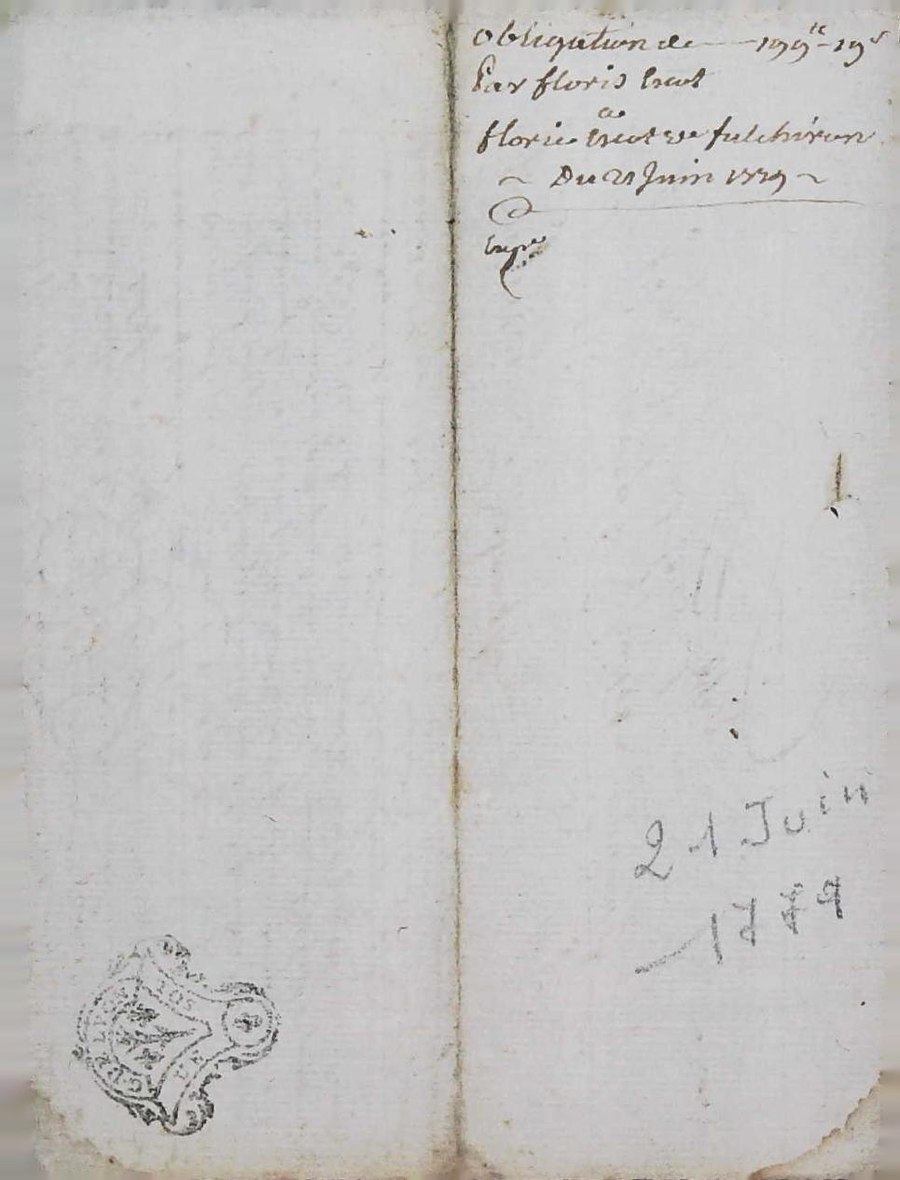 Obligation de — 199ᵗᵗ-19ˢ
Par floris
a
florie fulchiron
~ Du 21 Juin 1779 ~
21 Juin
1779